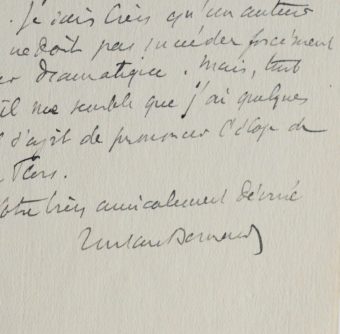 . Je sais très qu'un auteur
ne doit pas succéder forcément
dramatique. Mais, tout
il me semble que j'ai quelques
s'agit de prononcer l'éloge de
Flers.
votre très amicalement dévoué
Tristan Bernard